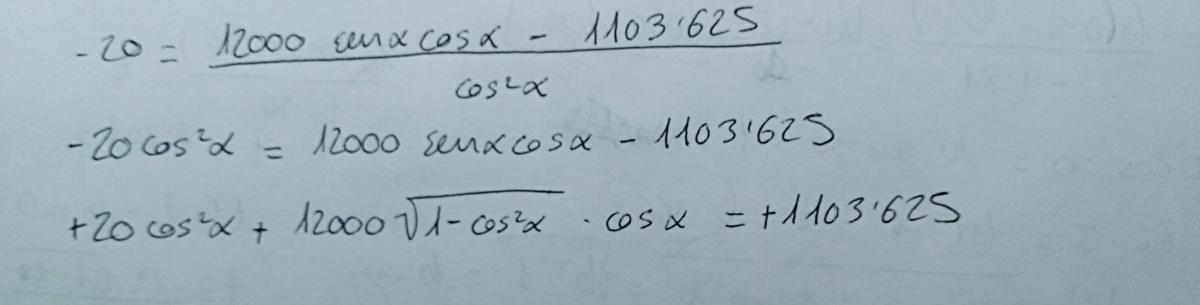 -20 = (12000 senα cosα - 1103'625) / cos²α
-20 cos²α = 12000 senα cosα - 1103'625
+20 cos²α + 12000 √(1-cos²α) · cosα = +1103'625